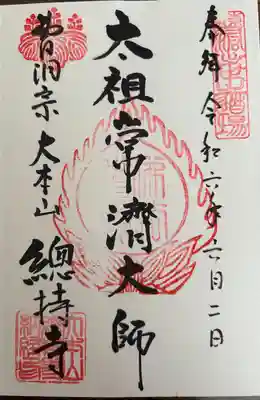 奉拝 令和六年六月二日
太祖常濟大師
曹洞宗 大本山 總持寺